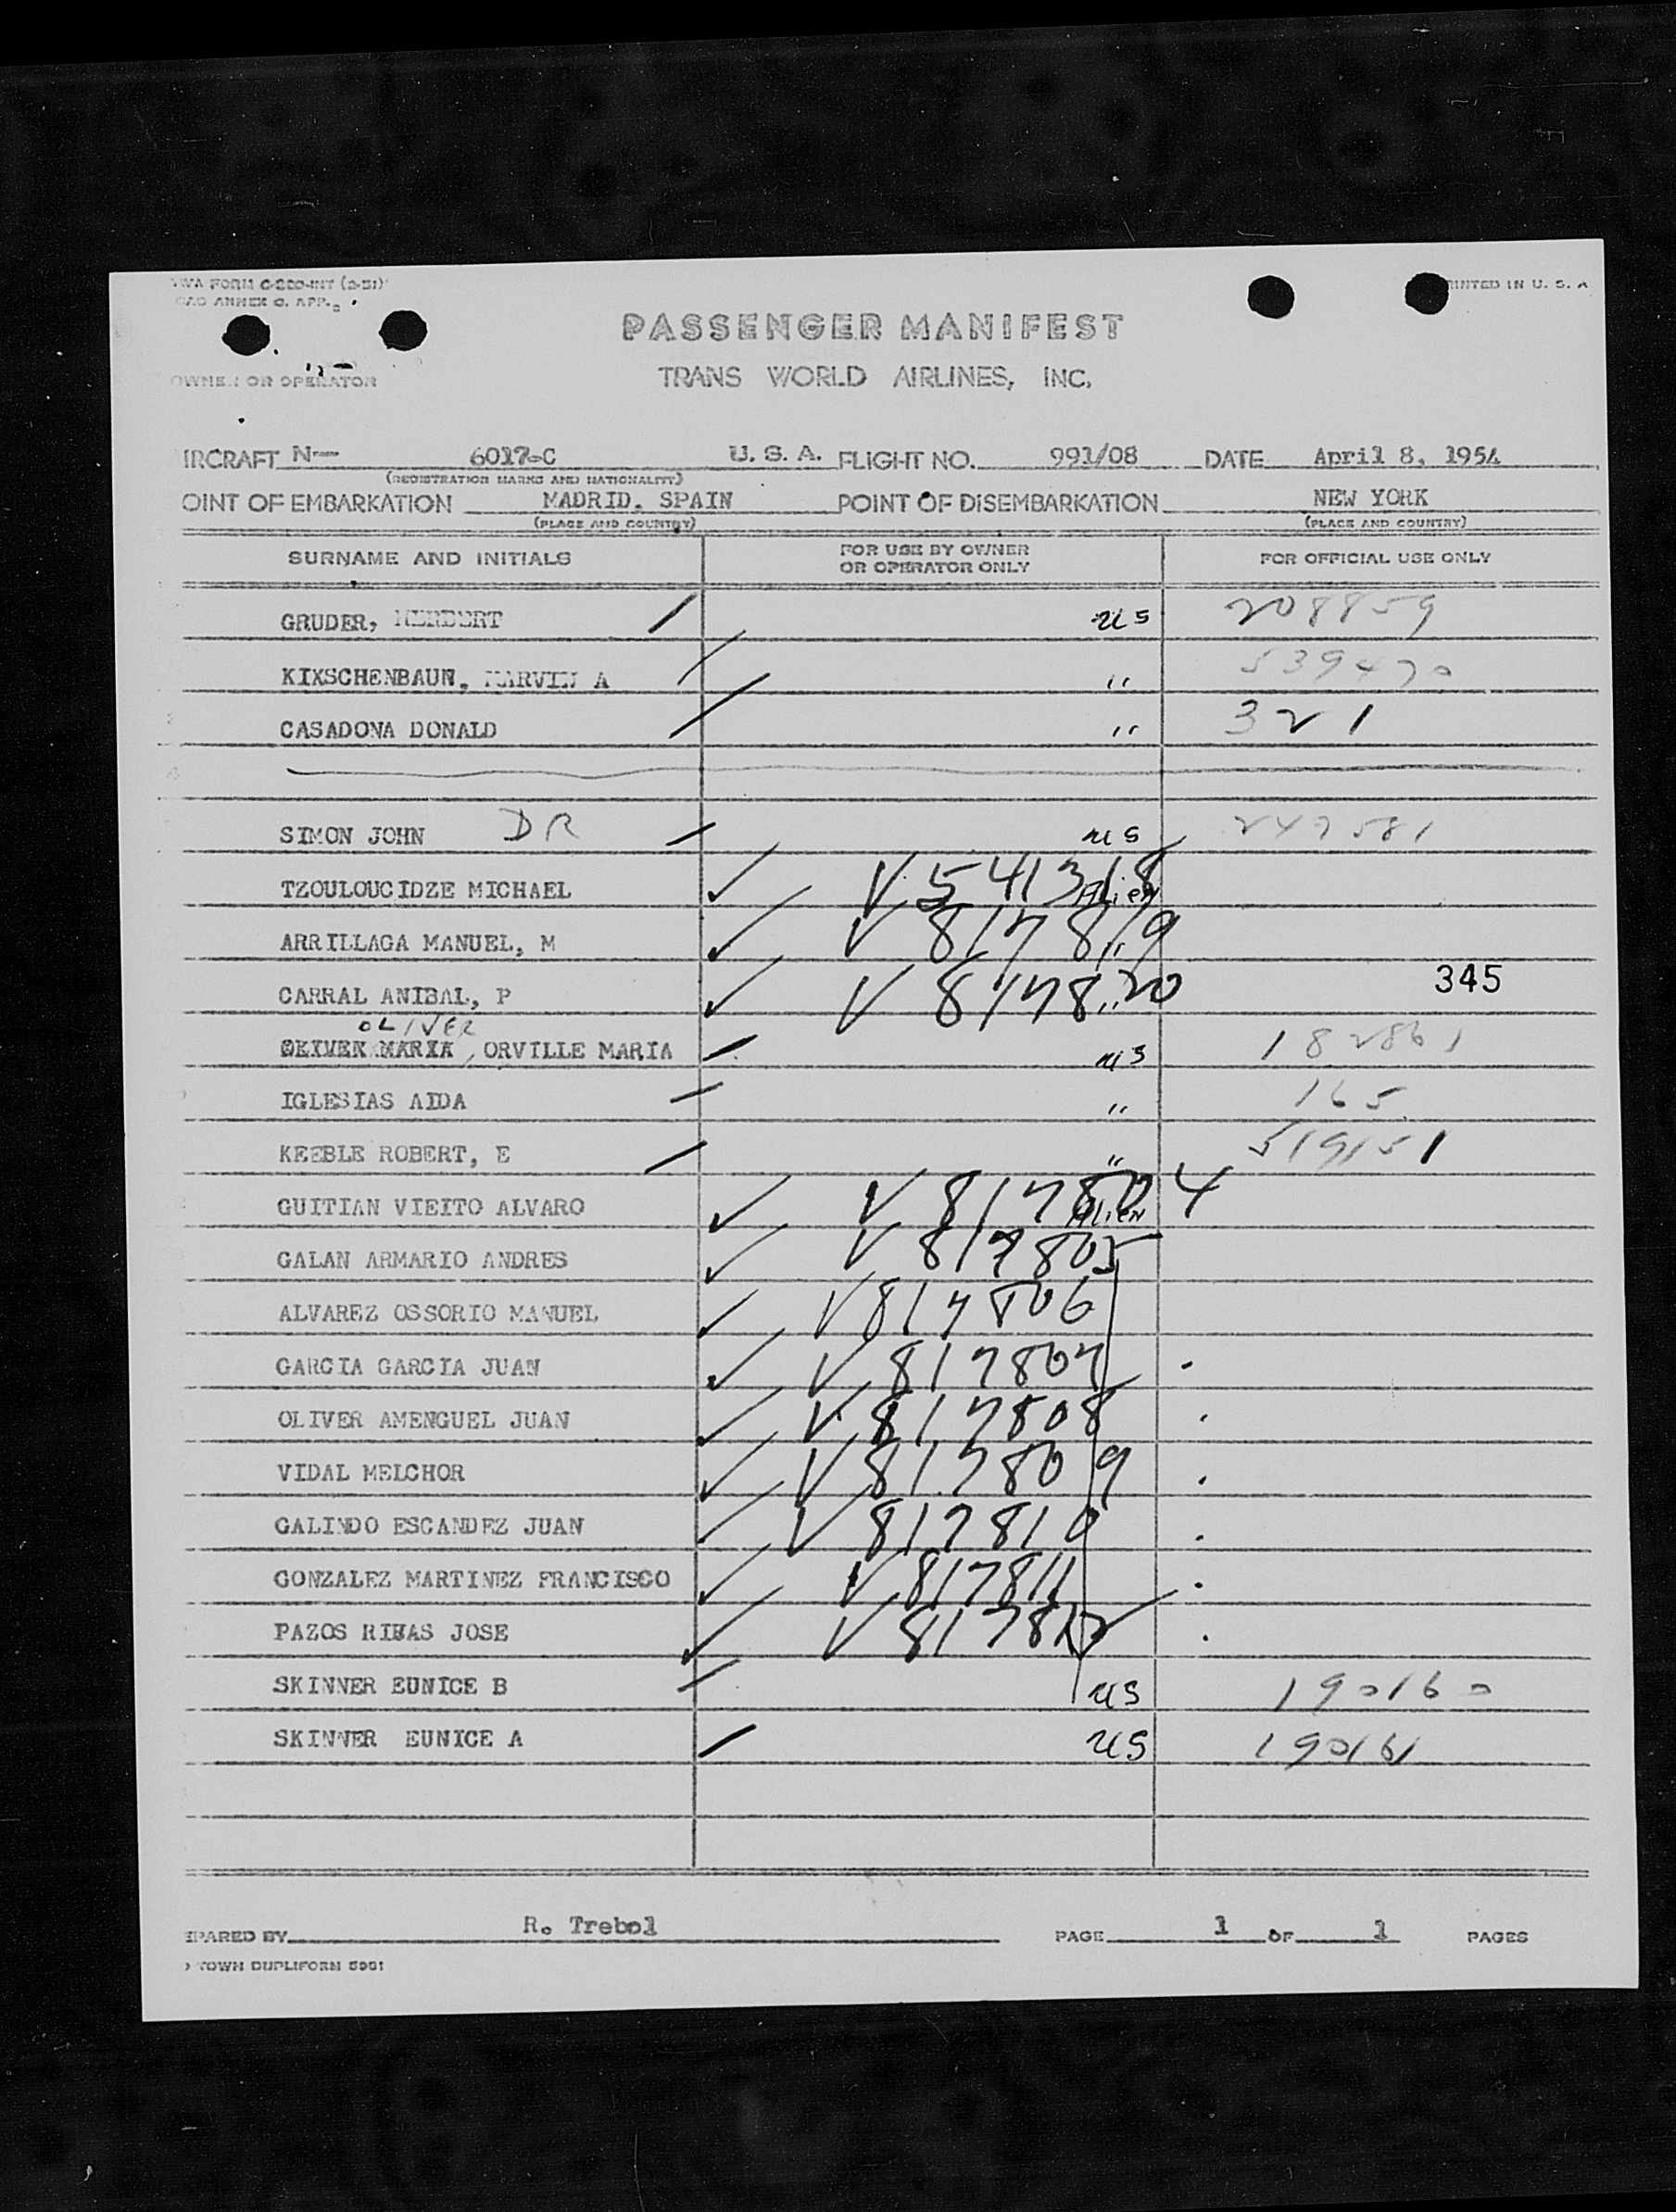 WA FORM C-200-INT (2-51)
CAO ANNEX 9. APP. 2
PRINTED IN U. S. A
PASSENGER MANIFEST
OWNER OR OPERATOR TRANS WORLD AIRLINES, INC.
IRCRAFT N— 6017-C U. S. A. FLIGHT NO. 991/08 DATE April 8, 1954
(REGISTRATION MARKS AND NATIONALITY)
OINT OF EMBARKATION MADRID. SPAIN POINT OF DISEMBARKATION NEW YORK
(PLACE AND COUNTRY) (PLACE AND COUNTRY)
SURNAME AND INITIALS FOR USE BY OWNER OR OPERATOR ONLY FOR OFFICIAL USE ONLY
GRUDER, HERBERT / US 208859
KIXSCHENBAUN, MARVIN A / " 539470
CASADONA DONALD / " 321
SIMON JOHN DR / US 247581
TZOULOUCIDZE MICHAEL ✓ V 541318 Alien
ARRILLAGA MANUEL, M ✓ V 817819 "
CARRAL ANIBAL, P ✓ V 817820 "
345
OLIVER
OLIVER MARIA, ORVILLE MARIA / US 182861
IGLESIAS AIDA / " 165
KEEBLE ROBERT, E / " 519151
GUITIAN VIEITO ALVARO ✓ V 817804 Alien
GALAN ARMARIO ANDRES ✓ V 817805
ALVAREZ OSSORIO MANUEL ✓ V 817806
GARCIA GARCIA JUAN ✓ V 817807
OLIVER AMENGUEL JUAN ✓ V 817808
VIDAL MELCHOR ✓ V 817809
GALINDO ESCANDEZ JUAN ✓ V 817810
GONZALEZ MARTINEZ FRANCISCO ✓ V 817811
PAZOS RIBAS JOSE ✓ V 817812
SKINNER EUNICE B / US 190160
SKINNER EUNICE A / US 190161
EPARED BY R. Trebol PAGE 1 OF 1 PAGES
TOWN DUPLIFORM 5961